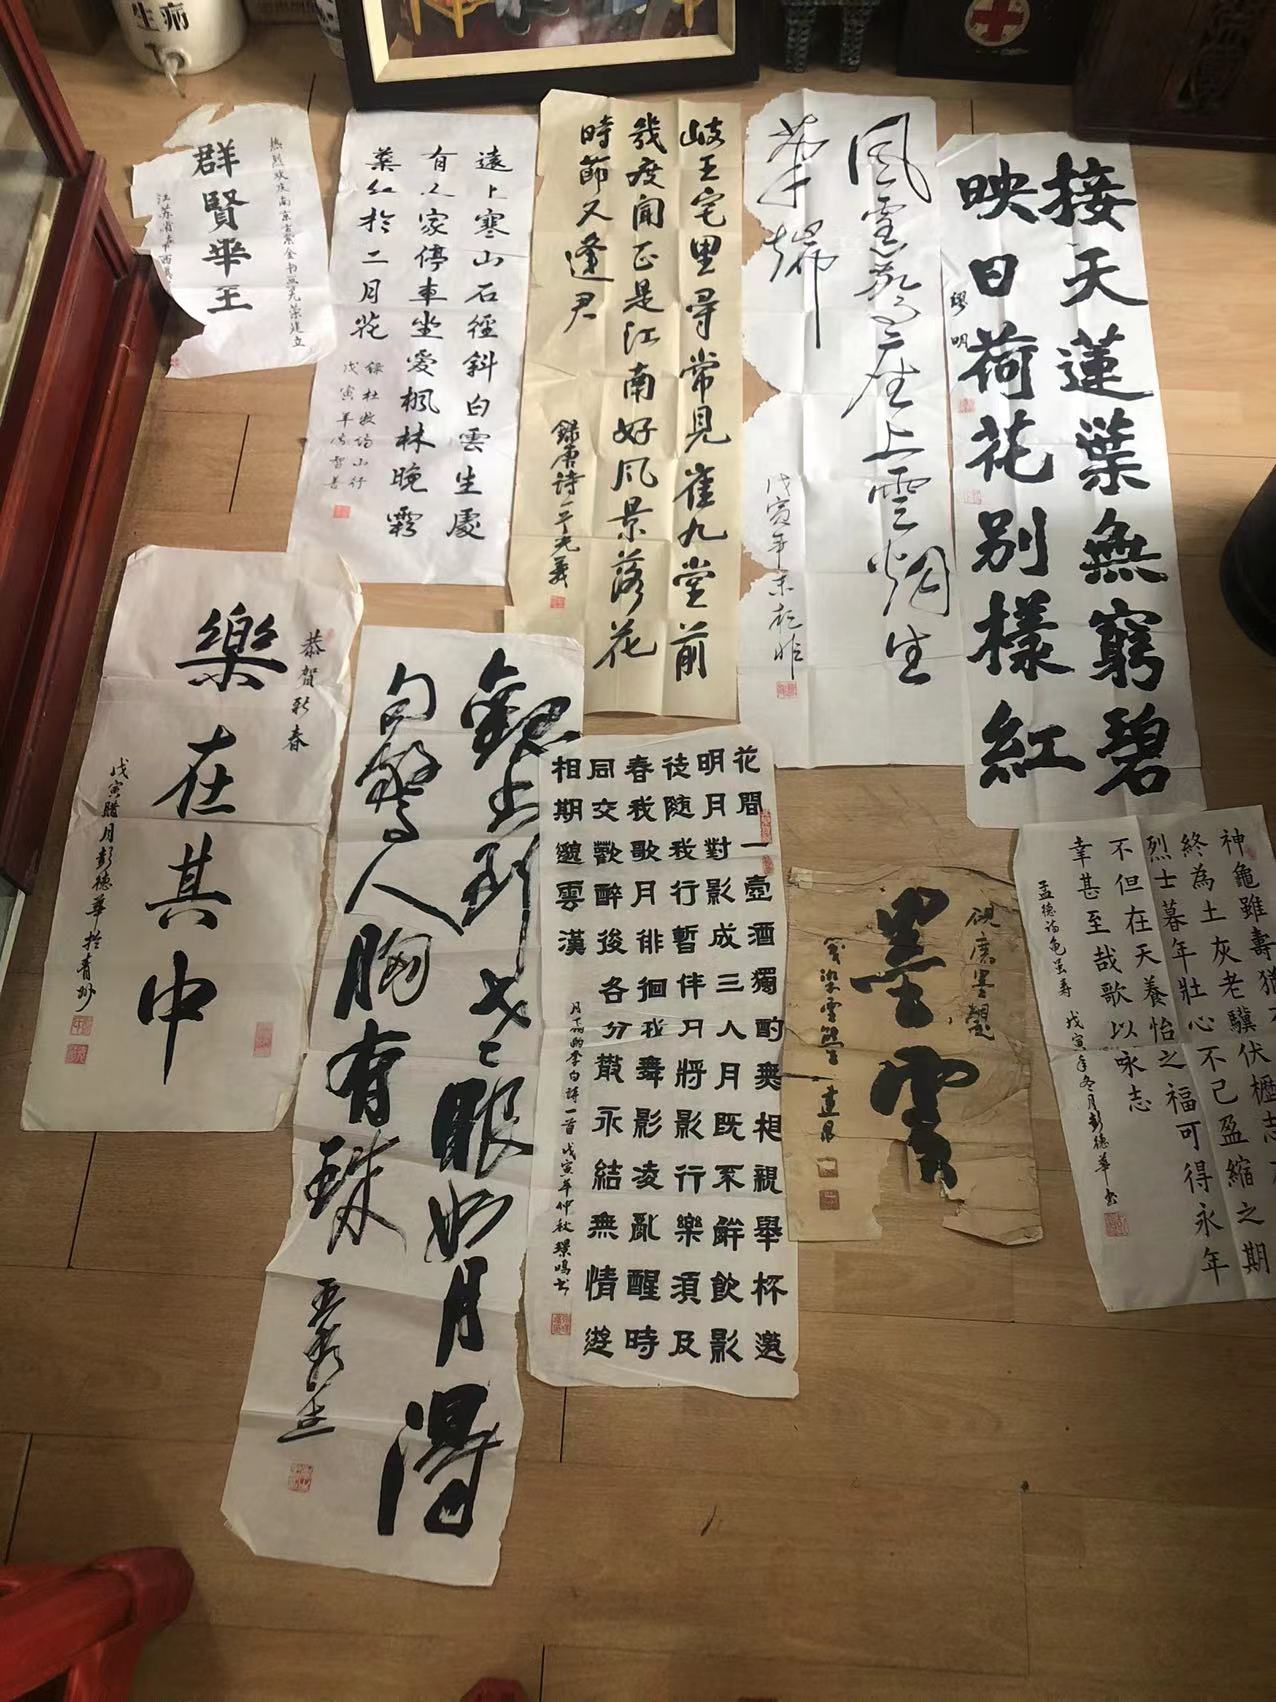 熱烈歡庆南京市紫金书画光荣建立
群賢畢至
遠上寒山石徑斜白雲生處
有人家停車坐愛楓林晚霜
葉紅於二月花
錄杜牧诗山行
戊寅年
岐王宅里尋常見崔九堂前
幾度聞正是江南好风景落花
時節又逢君
錄唐诗一首
座上雲烟生
筆端
戊寅年
接天蓮葉無窮碧
映日荷花别樣紅
恭賀新春
樂在其中
戊寅腊月彭德華於青州
眼如月得
句驚人胸有珠
花間一壺酒獨酌無相親舉杯邀
明月對影成三人月既不解飲影
徒随我行暫伴月將影行樂須及
春我歌月徘徊我舞影凌亂醒時
同交歡醉後各分散永結無情遊
相期邈雲漢
月下独酌李白詩一首戊寅年仲秋璟鳴书
墨雲
神龜雖壽猶
終為土灰老驥伏櫪志
烈士暮年壯心不已盈縮之期
不但在天養怡之福可得永年
幸甚至哉歌以咏志
孟德詩龟虽寿 戊寅年冬月彭德華书